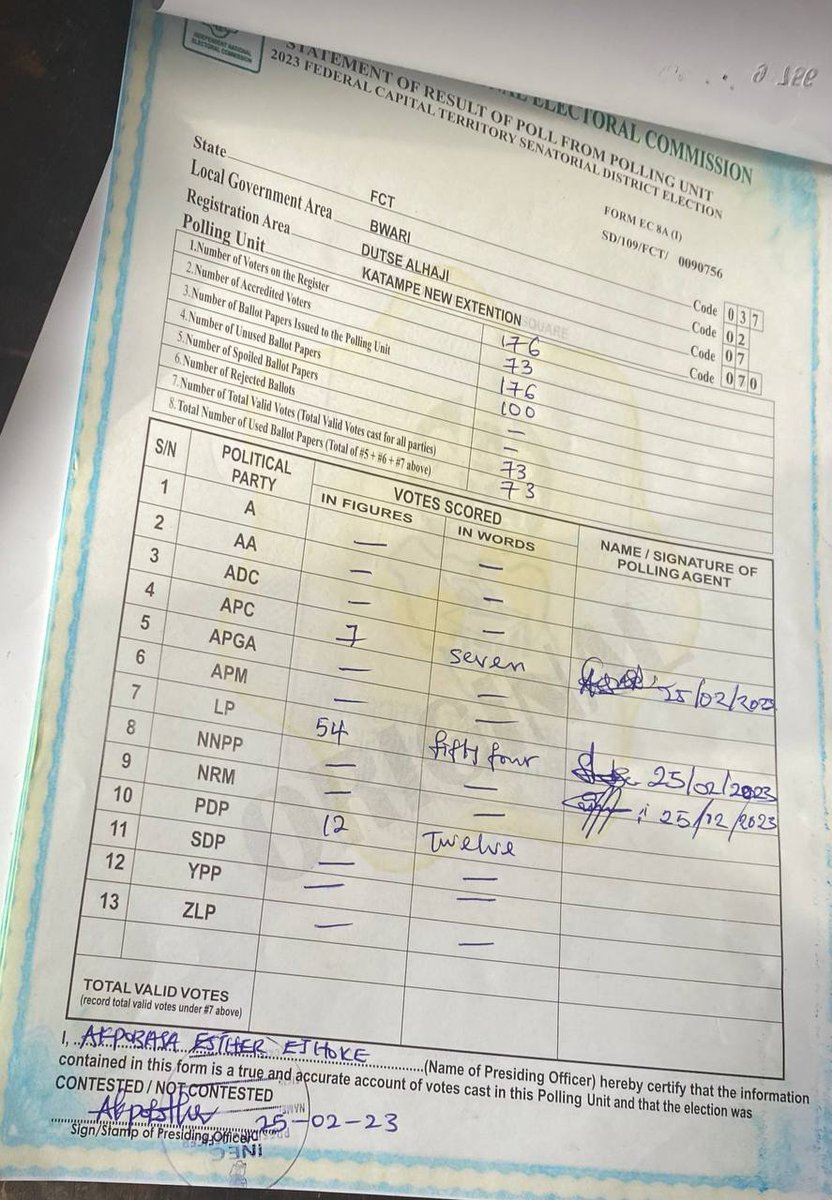 INDEPENDENT NATIONAL
ELECTORAL COMMISSION
ELECTORAL COMMISSION
STATEMENT OF RESULT OF POLL FROM POLLING UNIT
2023 FEDERAL CAPITAL TERRITORY SENATORIAL DISTRICT ELECTION
FORM EC 8A (I)
SD/109/FCT/ 0090756
State FCT Code 037
Local Government Area BWARI Code 02
Registration Area DUTSE ALHAJI Code 07
Polling Unit KATAMPE NEW EXTENTION SQUARE Code 070
1.Number of Voters on the Register 176
2.Number of Accredited Voters 73
3.Number of Ballot Papers Issued to the Polling Unit 176
4.Number of Unused Ballot Papers 100
5.Number of Spoiled Ballot Papers —
6.Number of Rejected Ballots —
7.Number of Total Valid Votes (Total Valid Votes cast for all parties) 73
8.Total Number of Used Ballot Papers (Total of #5 + #6 + #7 above) 73
S/N POLITICAL PARTY VOTES SCORED NAME / SIGNATURE OF POLLING AGENT
IN FIGURES IN WORDS
1 A — —
2 AA — —
3 ADC — —
4 APC 7 seven 25/02/2023
5 APGA — —
6 APM — —
7 LP 54 fifty four 25/02/2023
8 NNPP — — 25/12/2023
9 NRM — —
10 PDP 12 Twelve
11 SDP — —
12 YPP — —
13 ZLP — —
TOTAL VALID VOTES
(record total valid votes under #7 above)
I, AKPOBASA ESTHER EJHOKE (Name of Presiding Officer) hereby certify that the information
contained in this form is a true and accurate account of votes cast in this Polling Unit and that the election was
CONTESTED / NOT CONTESTED
25-02-23
Sign/Stamp of Presiding Officer
INEC
ORIGINAL